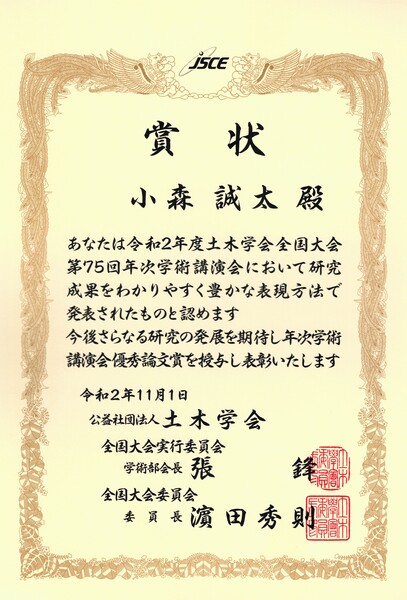 JSCE
賞状
小森誠太殿
あなたは令和2年度土木学会全国大会
第75回年次学術講演会において研究
成果をわかりやすく豊かな表現方法で
発表されたものと認めます
今後さらなる研究の発展を期待し年次学術
講演会優秀論文賞を授与し表彰いたします
令和2年11月1日
公益社団法人 土木学会
全国大会実行委員会
学術部会長 張 鋒
全国大会委員会
委員長 濱田秀則